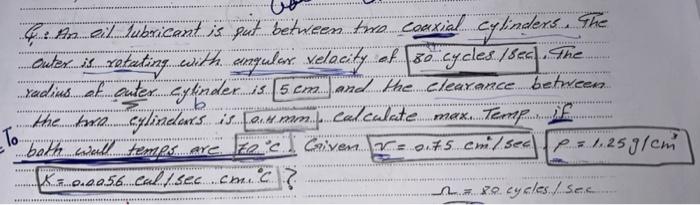 Q: An oil lubricant is put between two coaxial cylinders. The
outer is rotating with angular velocity of 80 cycles/sec. The
radius of outer cylinder is 5 cm and the clearance between
b
the two cylinders is 0.4 mm. Calculate max. Temp. if
To
both wall temps are 70 °C. Given ν = 0.75 cm²/sec ρ = 1.25 g/cm³
K = 0.0056 cal/sec.cm.°C ?
Ω = 80 cycles/sec